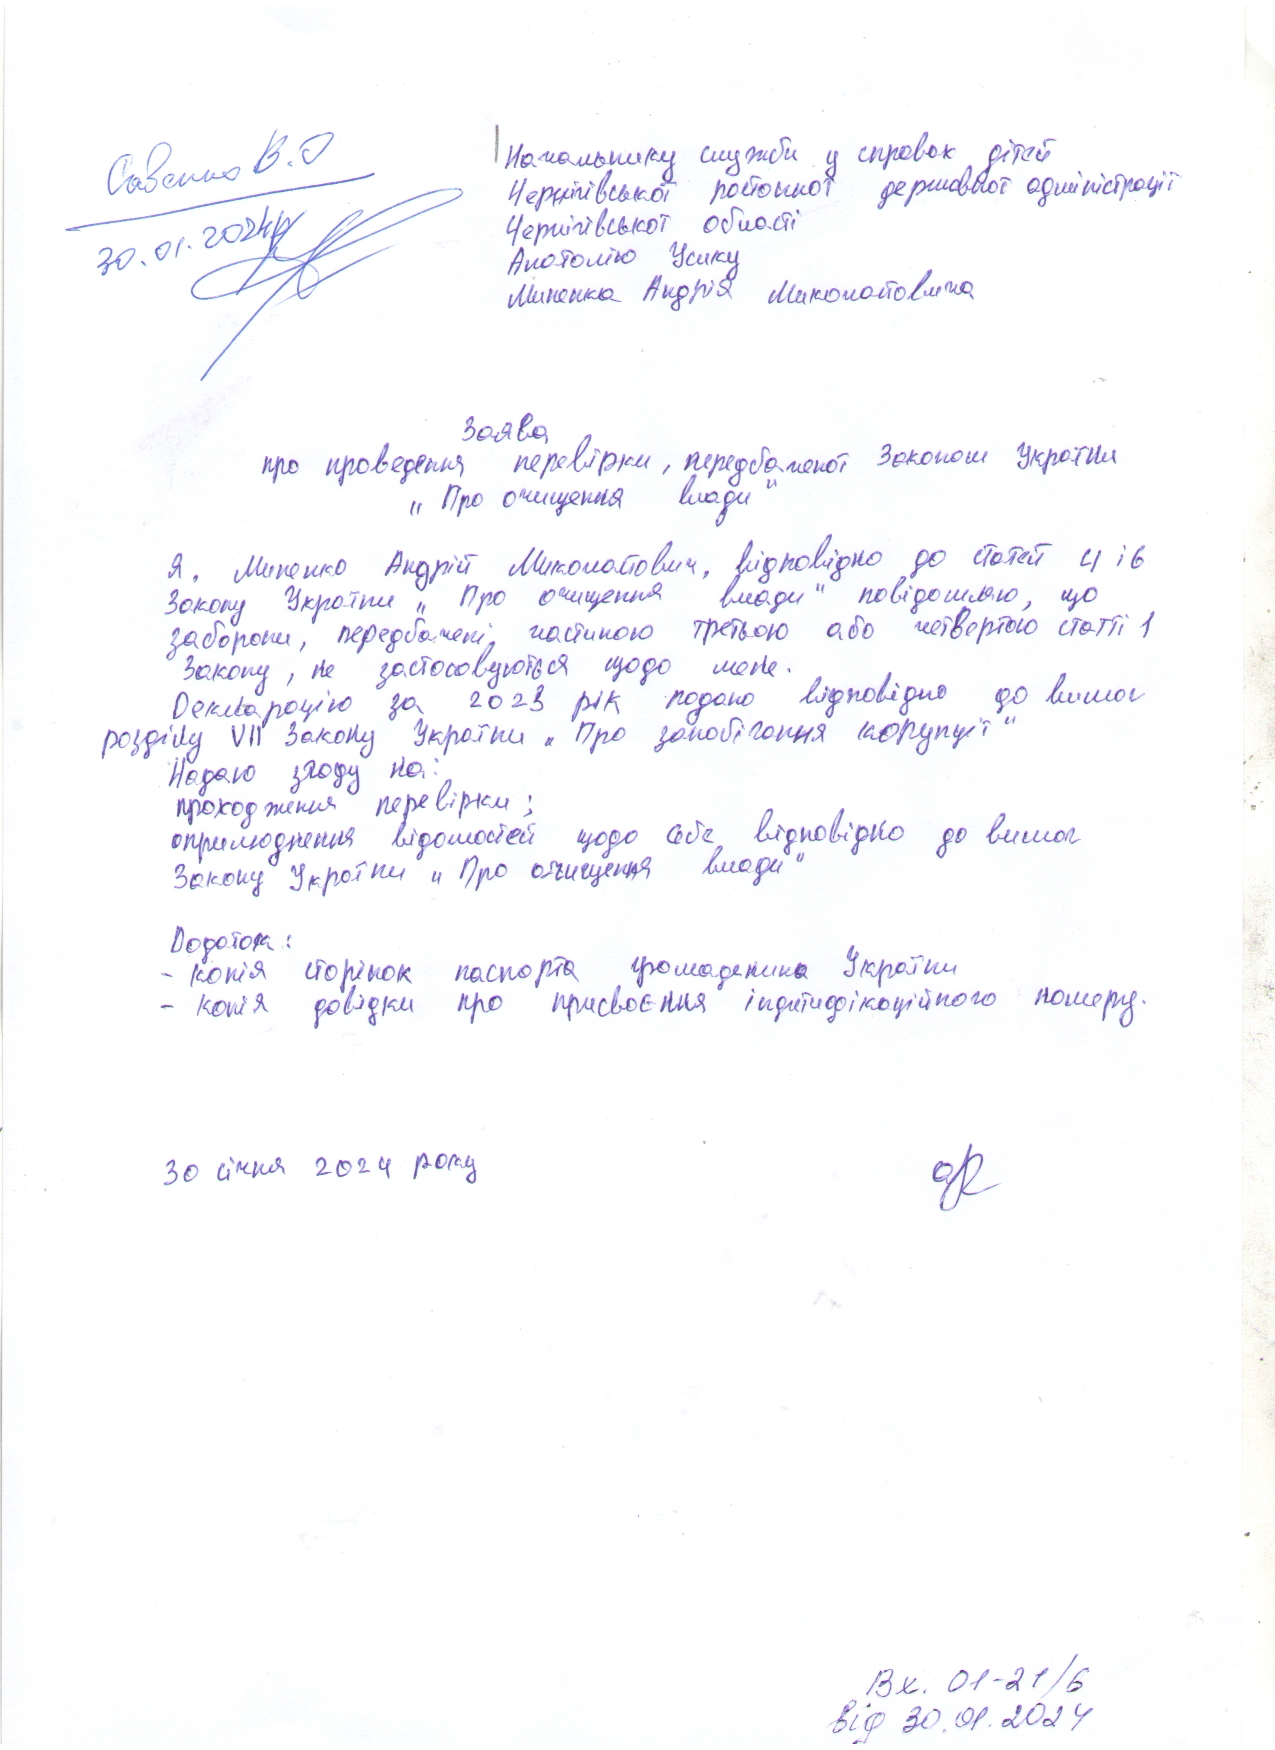 Савенко В.О
30.01.2024р
Начальнику служби у справах дітей
Чернігівської районної державної адміністрації
Чернігівської області
Анатолію Усику
Миненка Андрія Миколайовича
Заява
про проведення перевірки, передбаченої Законом України
„Про очищення влади"
Я, Миненко Андрій Миколайович, відповідно до статей 4 і 6
Закону України „Про очищення влади" повідомляю, що
заборони, передбачені, частиною третьою або четвертою статті 1
Закону, не застосовуються щодо мене.
Декларацію за 2023 рік подано відповідно до вимог
розділу VII Закону України „Про запобігання корупції"
Надаю згоду на:
проходження перевірки;
оприлюднення відомостей щодо себе відповідно до вимог
Закону України „Про очищення влади"
Додаток:
- копія сторінок паспорта громадянина України
- копія довідки про присвоєння ідентифікаційного номеру.
30 січня 2024 року
Вх. 01-21/6
від 30.01.2024